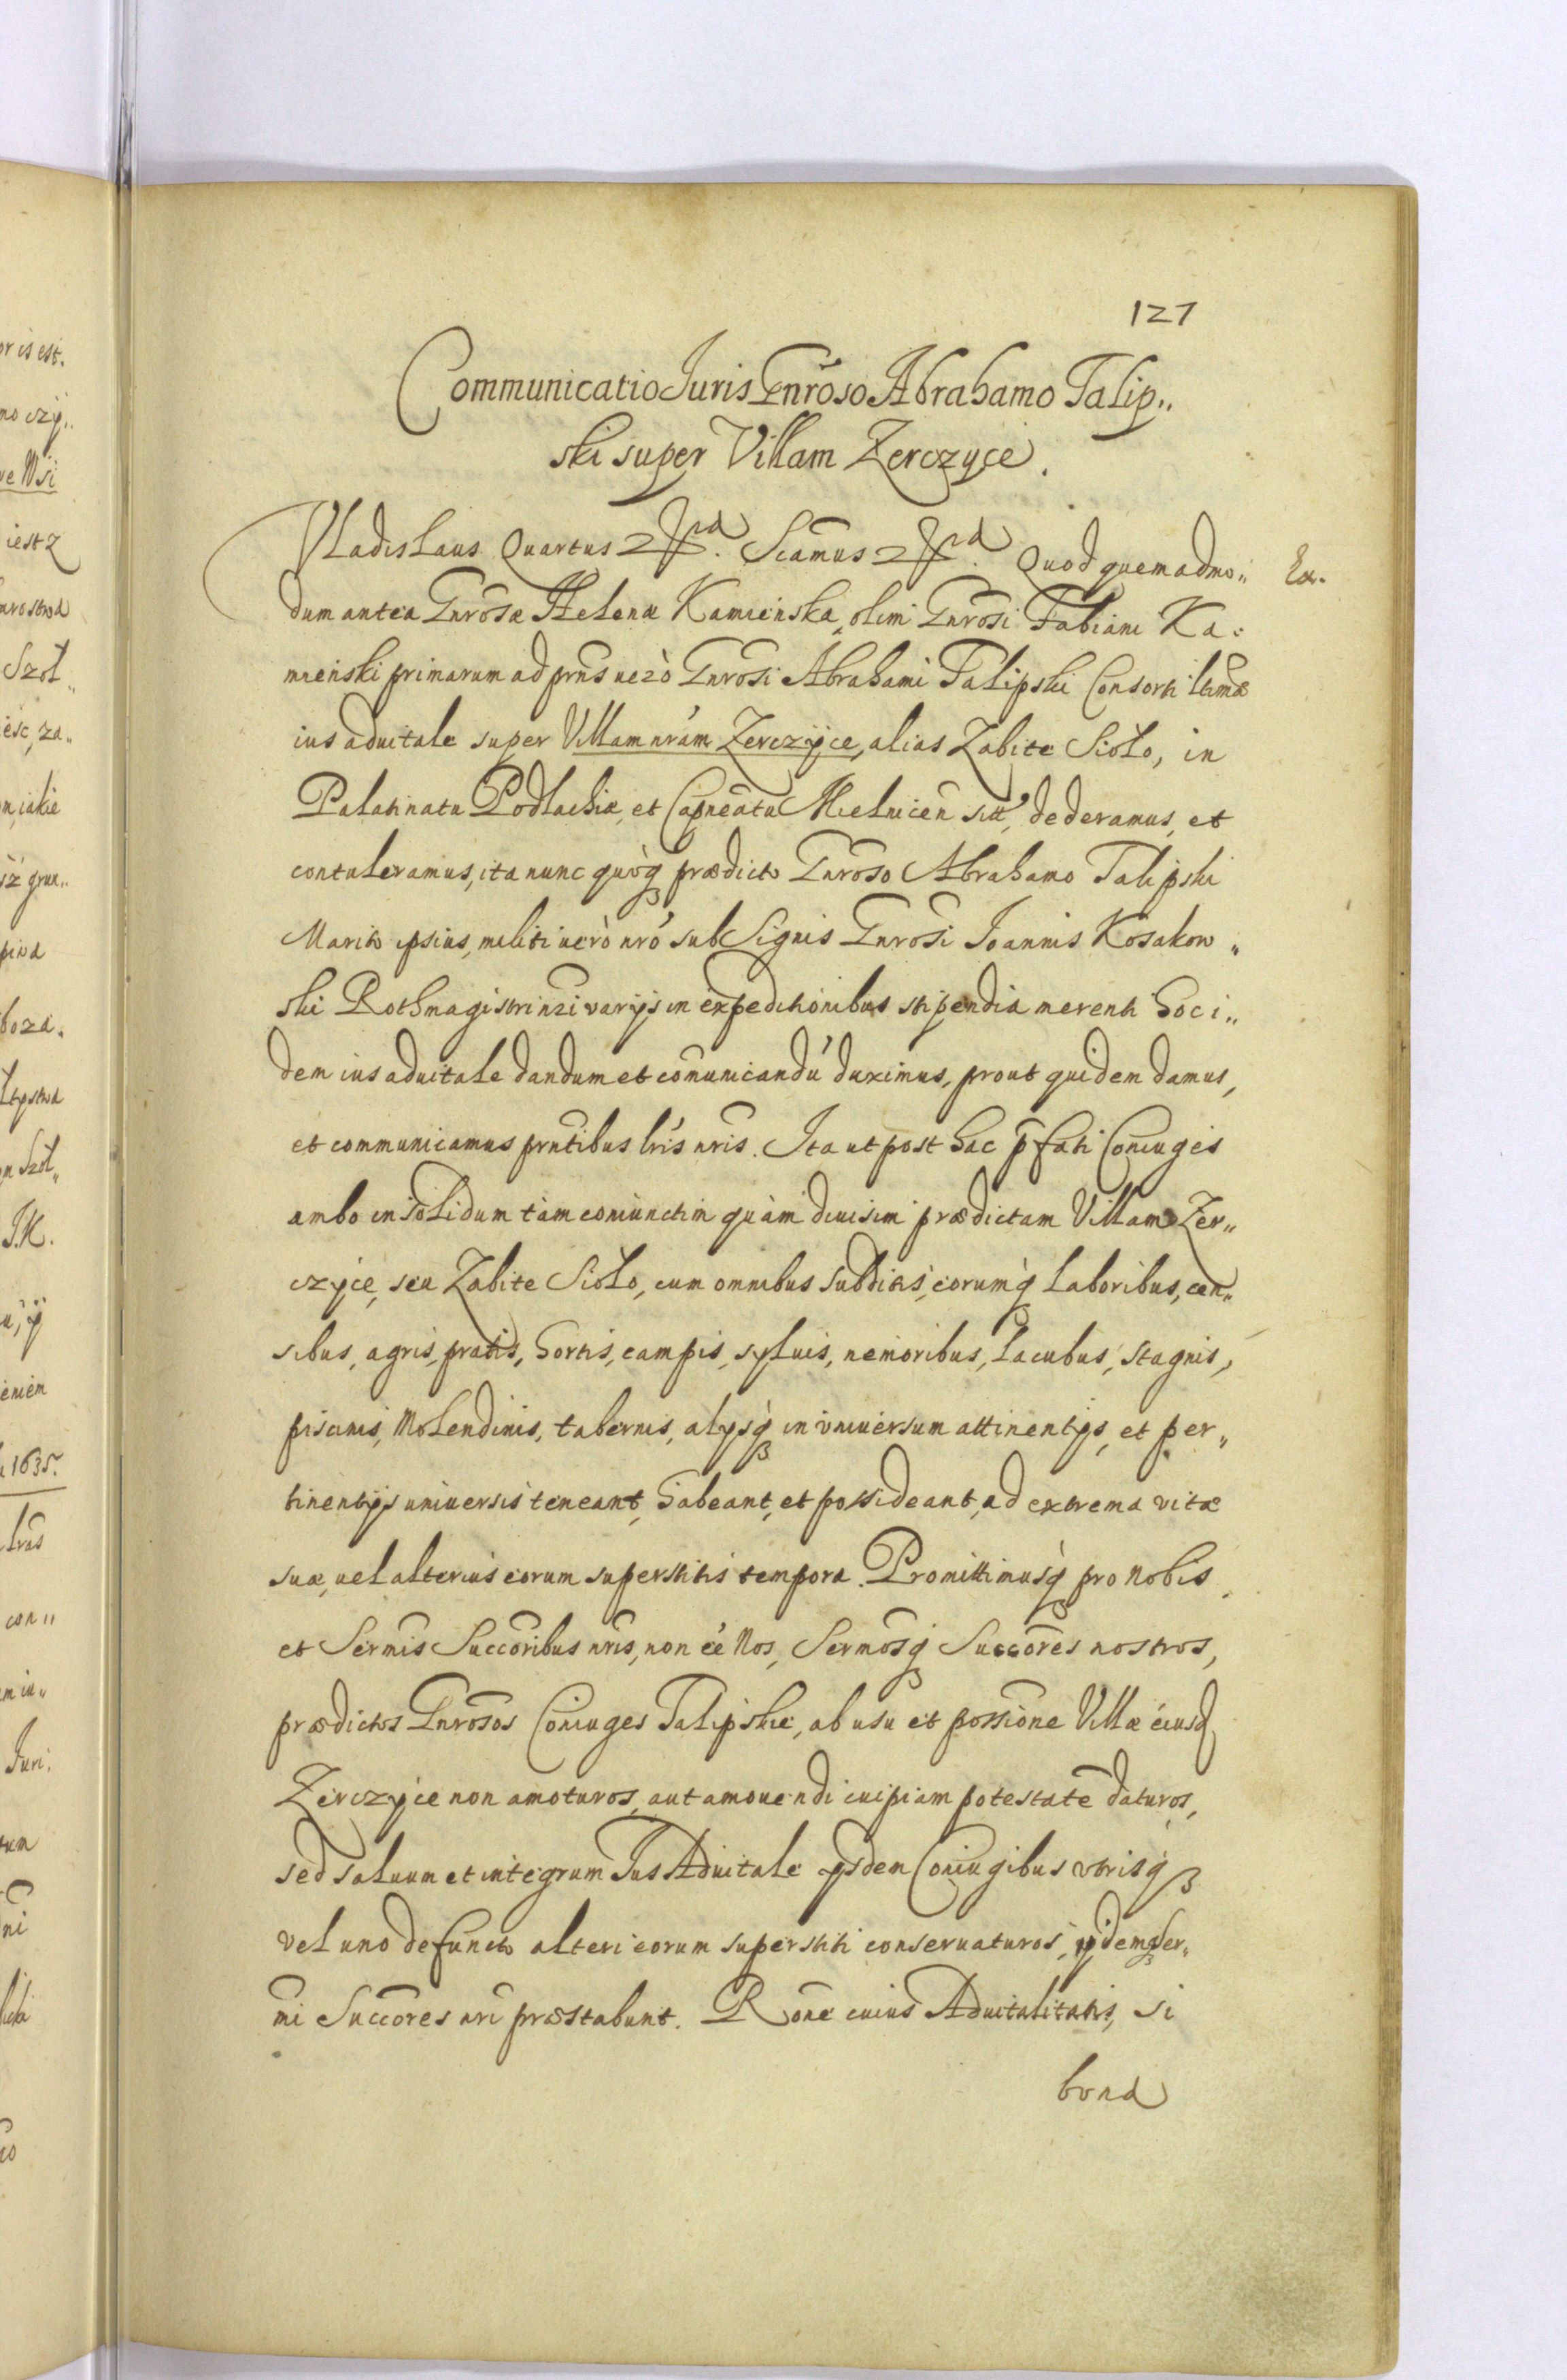 127
Communicatio Juris Gnr̃oso Abrahamo Talip„
ski super Villam Zerczyce.
Vladislaus Quartus Sciamus Quod quemadmo„
Ex.
dum antea Gnrosæ Helenæ Kamienska, olim Gnrosi Fabiani Ka:
mienski primarum ad prñs uerò Gnrosi Abrahami Talipski Consorti ltimæ
ius aduitale super Villam nrám Zerczyce, alias Zabite Sioło, in
Palatinatu Podlachiæ, et Capneatu Mielnicen sit̃, dederamus, et
contuleramus, ita nunc quoq̀ prædicto Gnroso Abrahamo Talipski
Marito ipsius, militi uerò nró sub Signis Gnrosi Joannis Kosakow„
ski Rothmagistri nri varijs in expeditionibus stipendia merenti hoc i„
dem ius aduitale dandum et com̃unicandú duximus, prout quidem damus,
et communicamus prñtibus lrís nris. Ita ut post hac p̃fati Coniuges
ambo in solidum tàm coniunctim quàm diuisim prædictam Villam Zer„
czyce, seu Zabite Sioło, cum omnibus subditis, eorumq̀ laboribus, cen„
sibus, agris, pratis, hortis, campis, syluis, nemoribus, lacubus, stagnis,
piscinis, Molendinis, tabernis, alijsq̀ in vniuersum attinentijs, et per„
tinentijs uniuersis teneant, habeant, et possideant, ad extrema vitæ
suæ, uel alterius eorum superstitis tempora. Promittimusq̀ pro Nobis
et Sermis Succoribus nris, non eé Nos, Sermosq̀ Succores nostros,
prædictos Gnrosos Coniuges Talipskie, ab usu et possione Villæ eiusd
Zerczyce non amoturos, aut amouendi cuipiam potestatẽ daturos,
sed saluum et integrum Ius Aduitale ijsdem Coniugibus vtrisq̀
vel uno defuncto alteri eorum superstiti conseruaturos, ijdemq̀ Ser„
mi Succores nri præstabunt. Rone cuius Aduitalitatis, si
bona